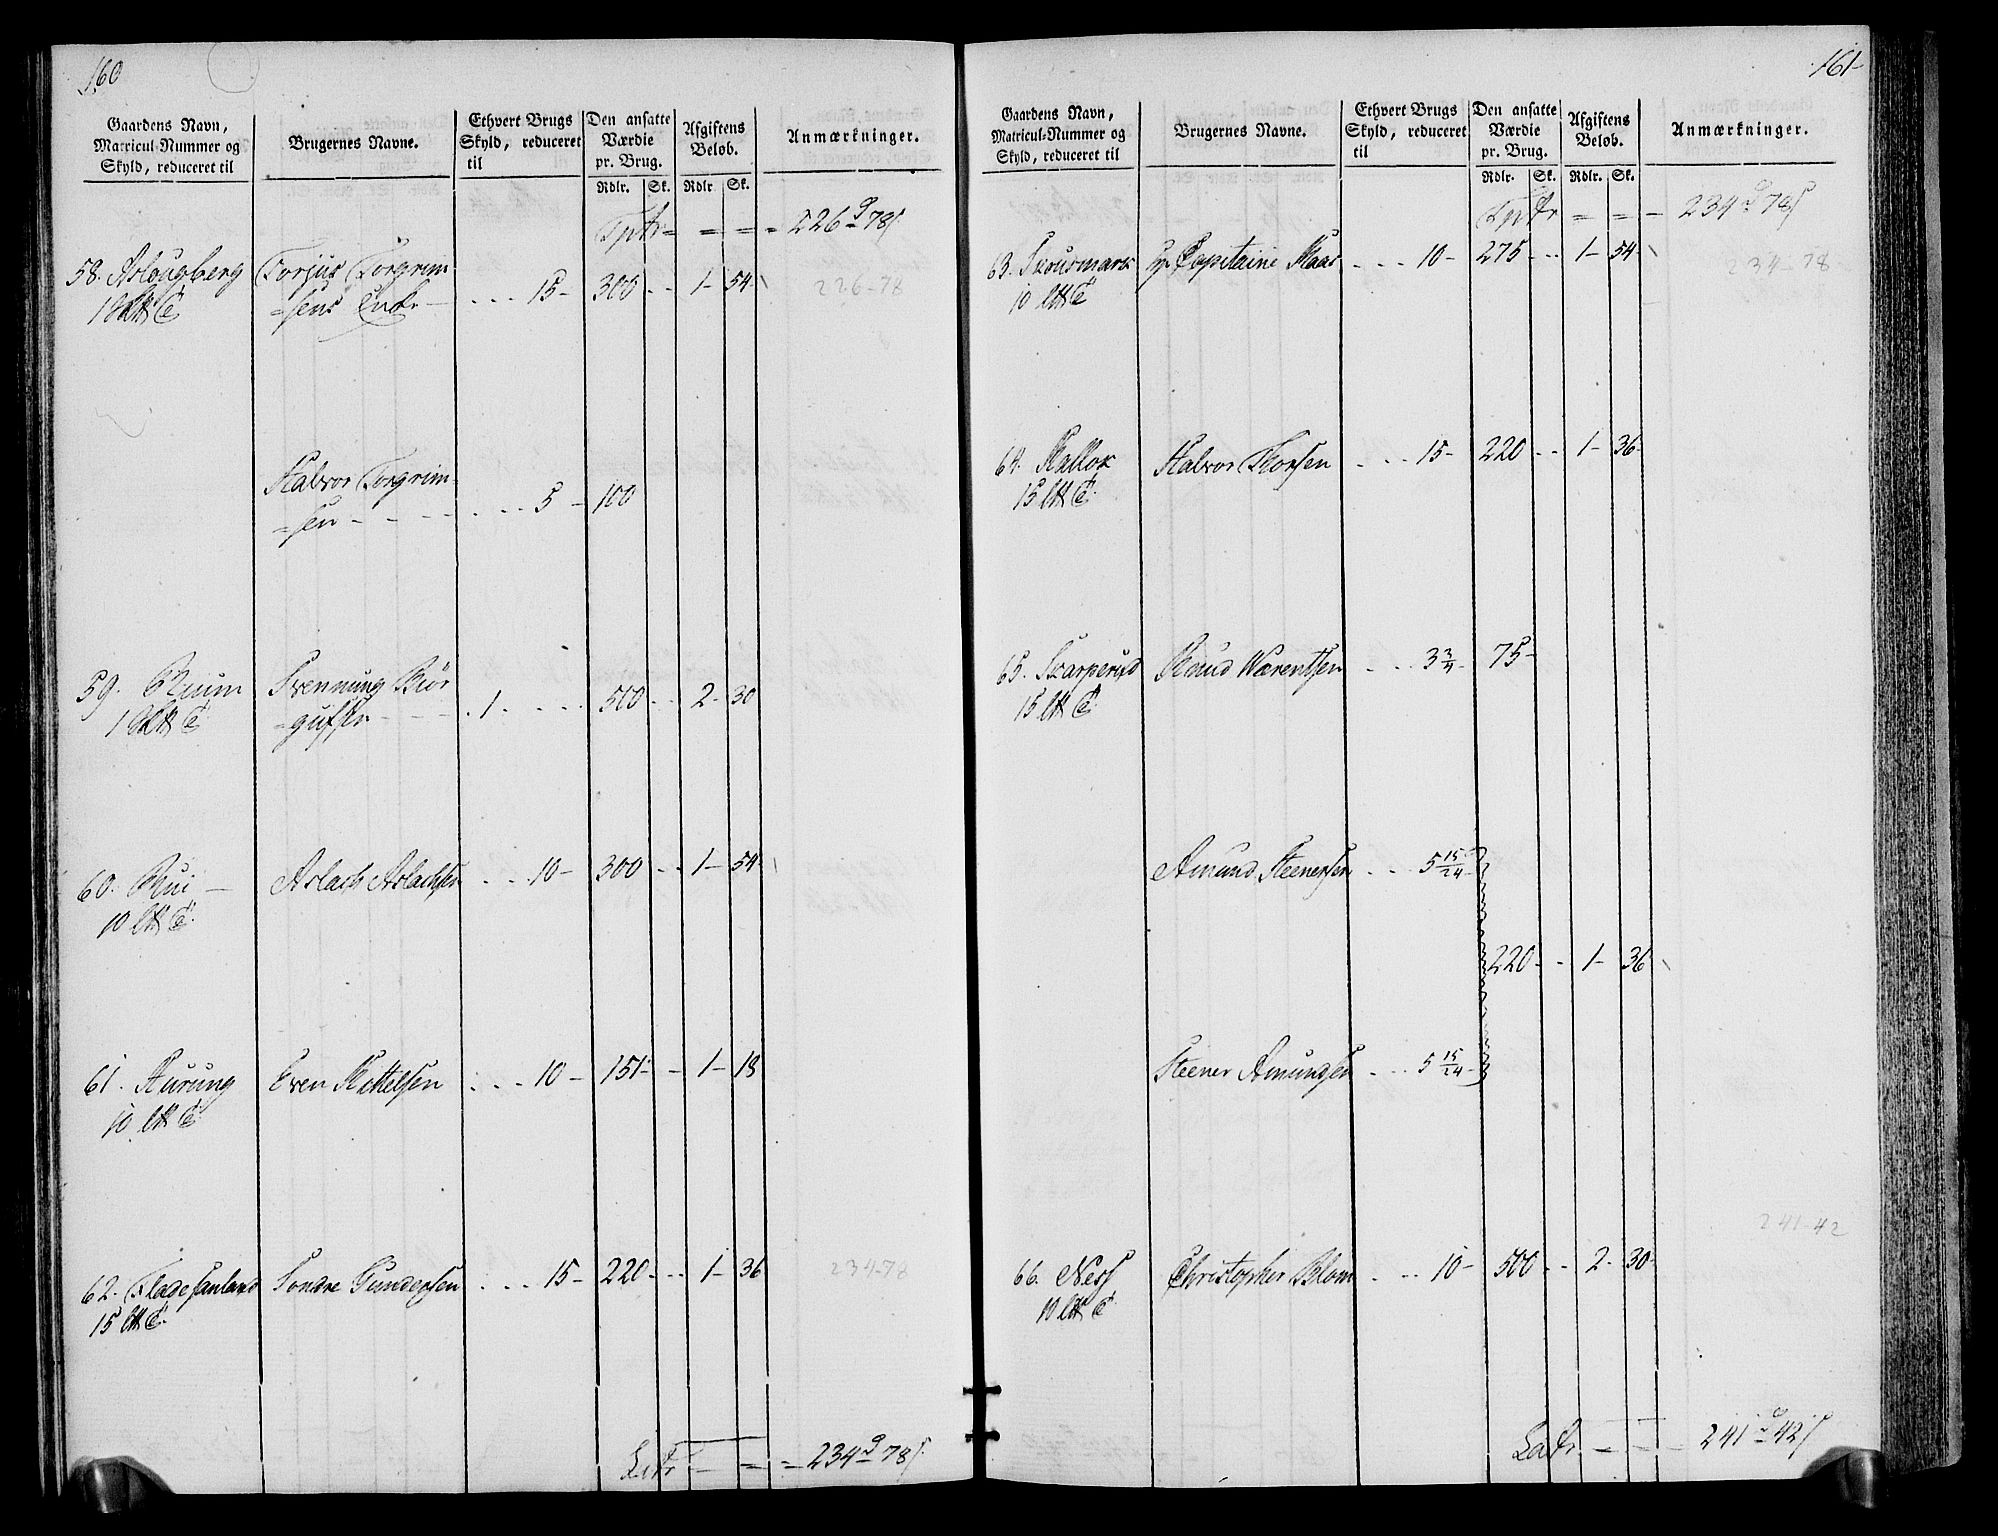 160
Gaardens Navn,
Matricul-Nummer og
Skyld, reduceret til
Brugernes Navne.
Ethvert Brugs
Skyld, reduceret
til
Den ansatte
Værdie
pr. Brug.
Afgiftens
Beløb.
Anmærkninger.
Rdlr. Sk. Rdlr. Sk.
Tptr = = = = 226 d 78 s
58. Aslougberg Torjus Torgrim
=sens Enke - - - - 15 - 300 - - 1 - 54
226-78
Halvor Torgrim
=sen - - - - - - - 5 - 100
59. Ruum Svennung Biør
=gufsen - - - 1 - - - - 500 - - 2 - 30
60. Rui - Aslach Aslachsen - - - 10 - 300 - - 1 - 54
10
61. Aurung Even Kittelsen - - - 10 - 151 - - 1 - 18
10
62. Fladesanland Sondre Gundersen - - - 15 - 220 - - 1 - 36
15
234-78
Latr - = = 234 d 78 s
161
Gaardens Navn,
Matricul-Nummer og
Skyld, reduceret til
Brugernes Navne.
Ethvert Brugs
Skyld, reduceret
til
Den ansatte
Værdie
pr. Brug.
Afgiftens
Beløb.
Anmærkninger.
Rdlr. Sk. Rdlr. Sk.
Tptr = = - 234 d 78 s
63. Skousmark Hr Capitaine Maas - - - 10 - 275 - - 1 - 54
10
234-78
64. Kallok Halvor Thorsen - - - 15 - 220 - - 1 - 36
15
65. Skarperud Knud Wærentsen - - - 3 3/4 - 75 -
15
Amund Steenersen - - - 5 15/24
220 - - 1 - 36
Steener Amundsen - - - 5 15/24
241-42
66. Ness Christopher Blom - - - 10 - 500 - - 2 - 30
10
Latr - - - 241 d 42 s